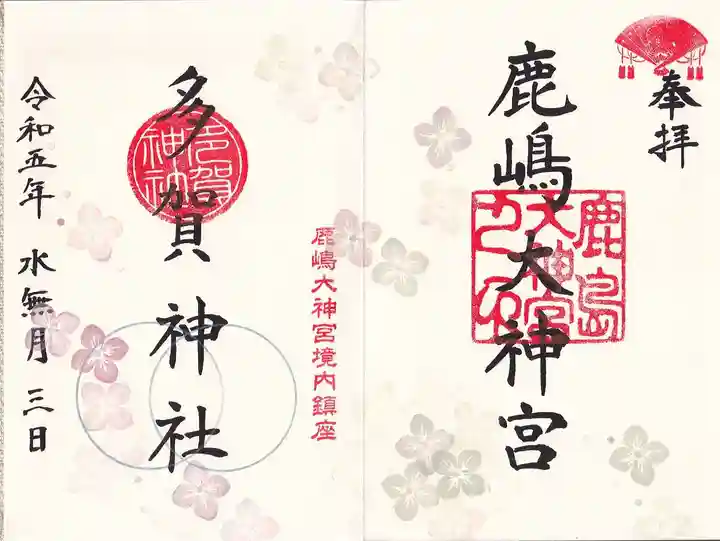 奉拝
鹿嶋大神宮
鹿島
大神宮
鹿嶋大神宮境内鎮座
多賀神社
多賀
神社
令和五年 水無月 三日